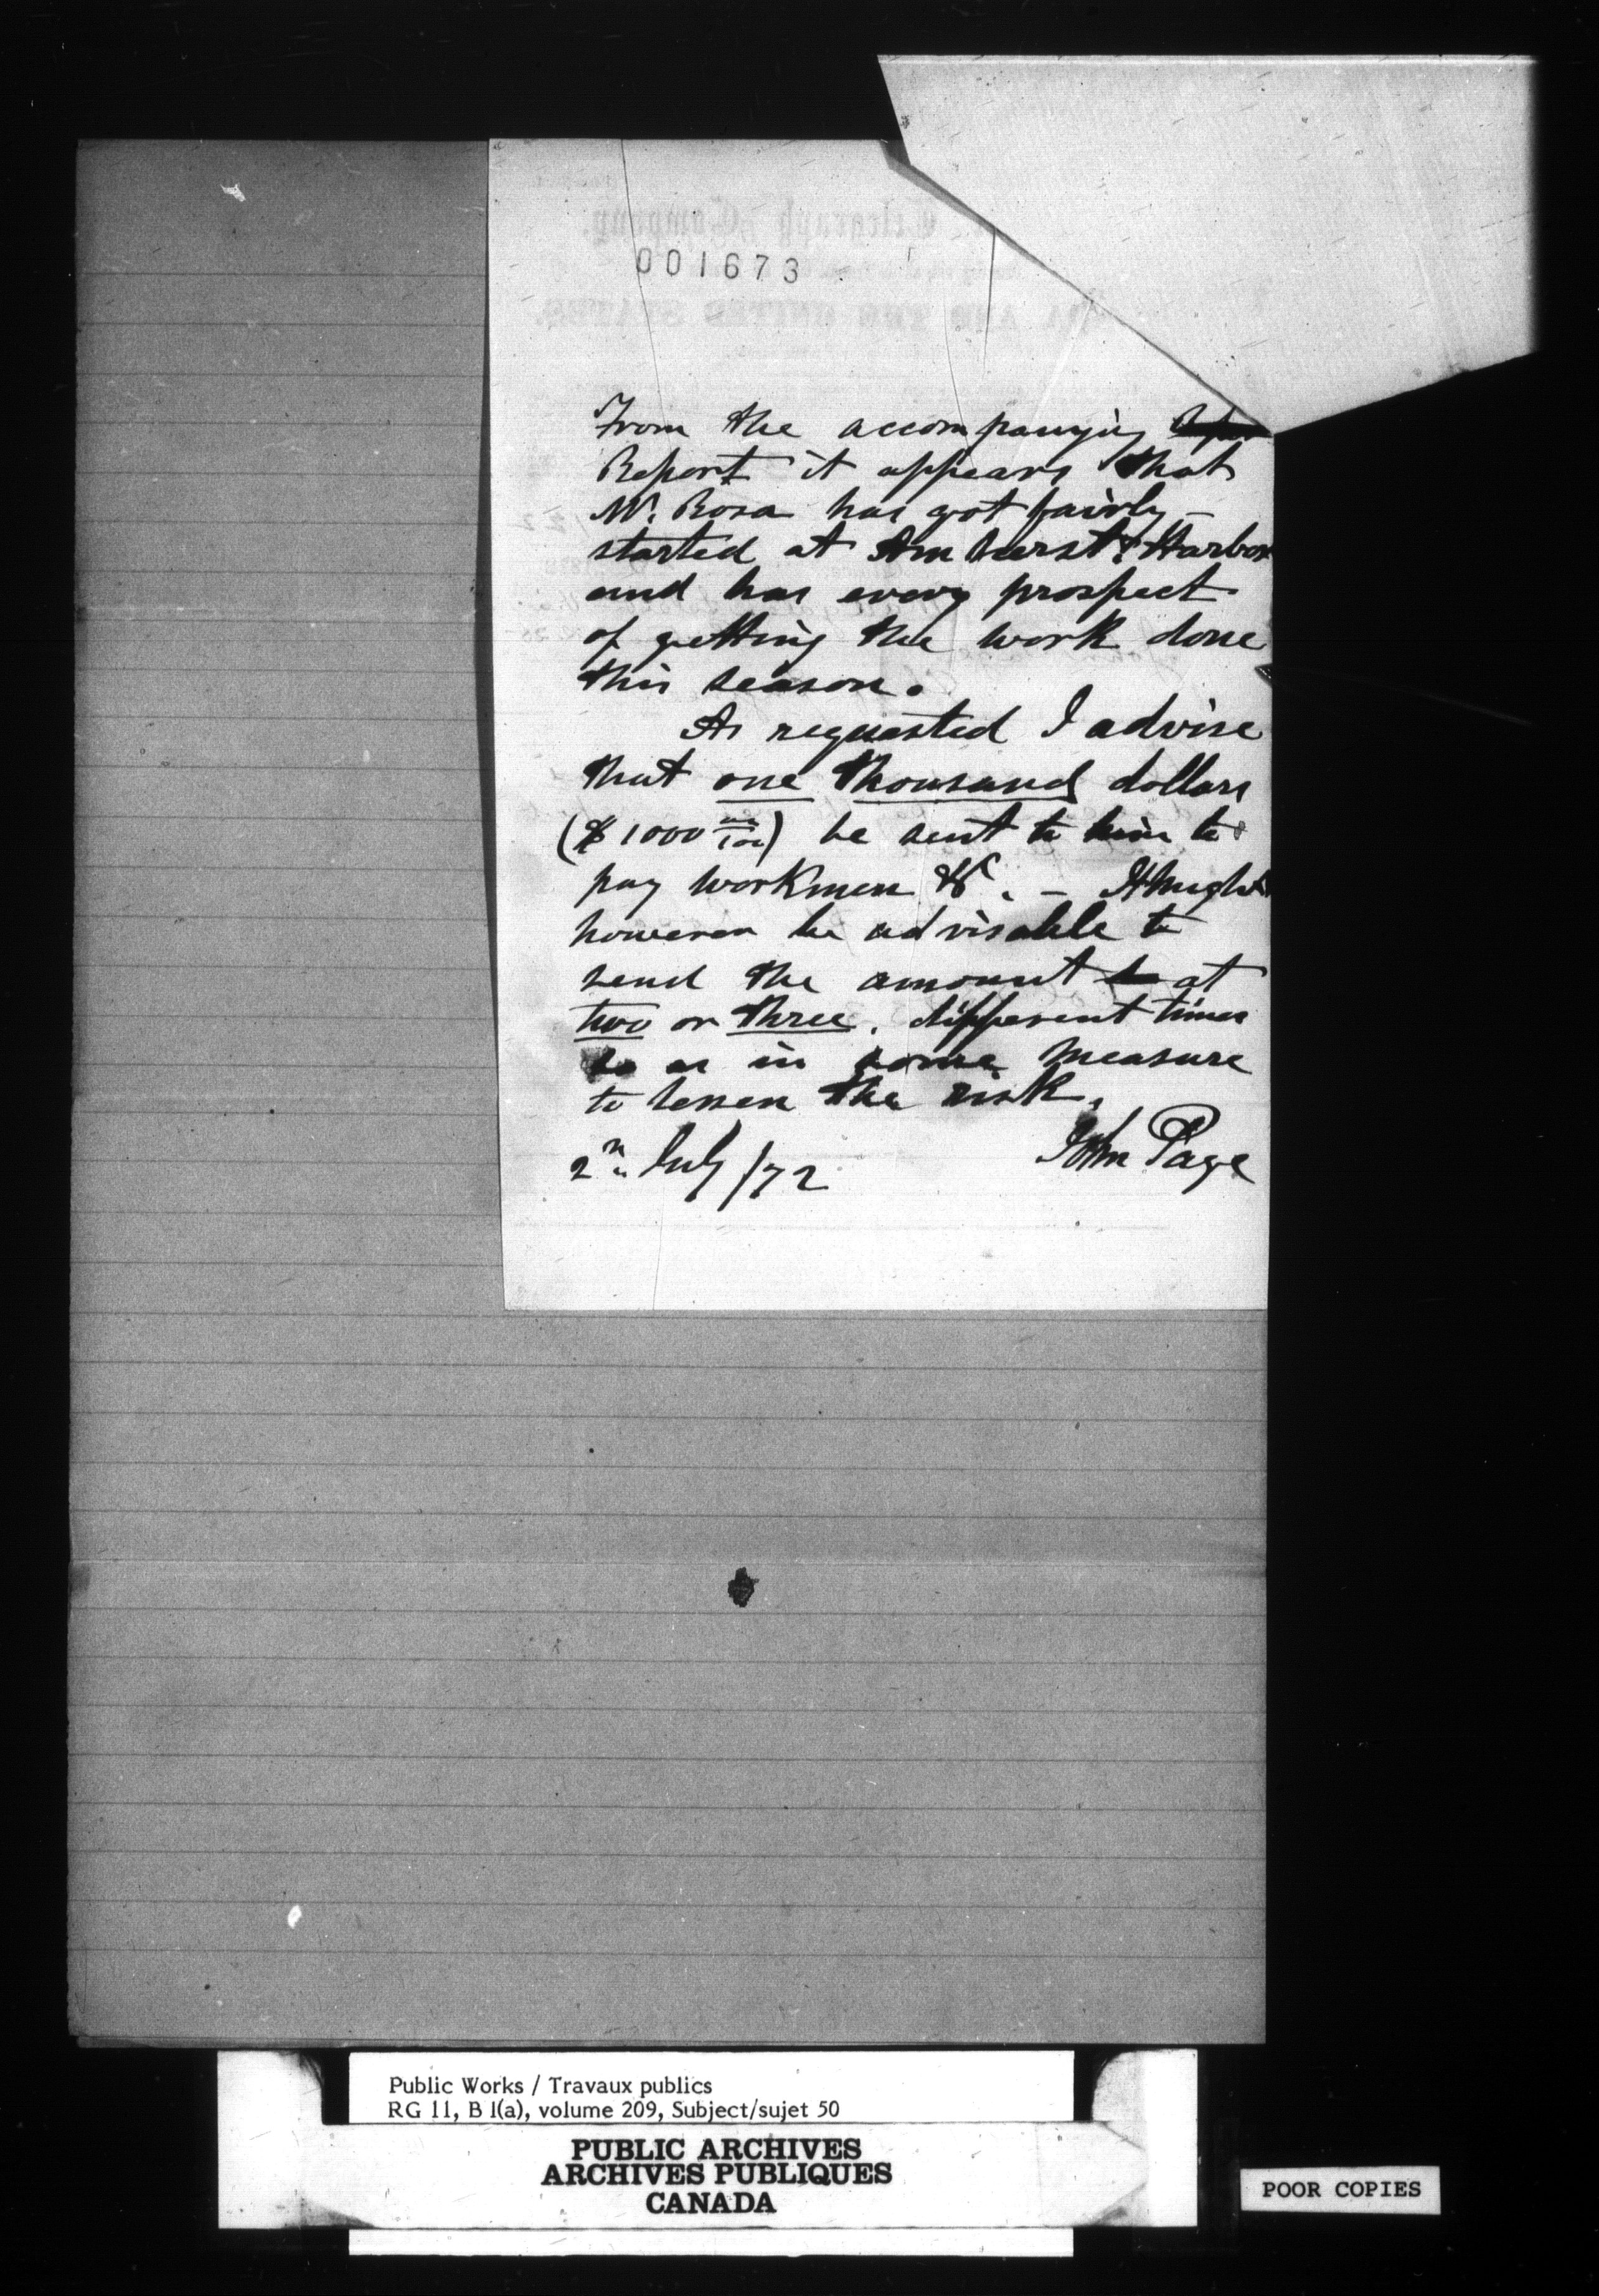 001673
From the accompanying
Report it appears that
Mr. Rosa has got fairly -
started at Amherst Harbor
and has every prospect
of getting the work done
this season.
As requested I advise
that one thousand dollars
($1000 00/100) be sent to him to
pay workmen &c. - It might
however be advisable to
send the amount at
two or three, different times
so as in some measure
to lessen the risk.
2n. July /72 John Page
Public Works / Travaux publics
RG 11, B 1(a), volume 209, Subject/sujet 50
PUBLIC ARCHIVES
ARCHIVES PUBLIQUES
CANADA
POOR COPIES